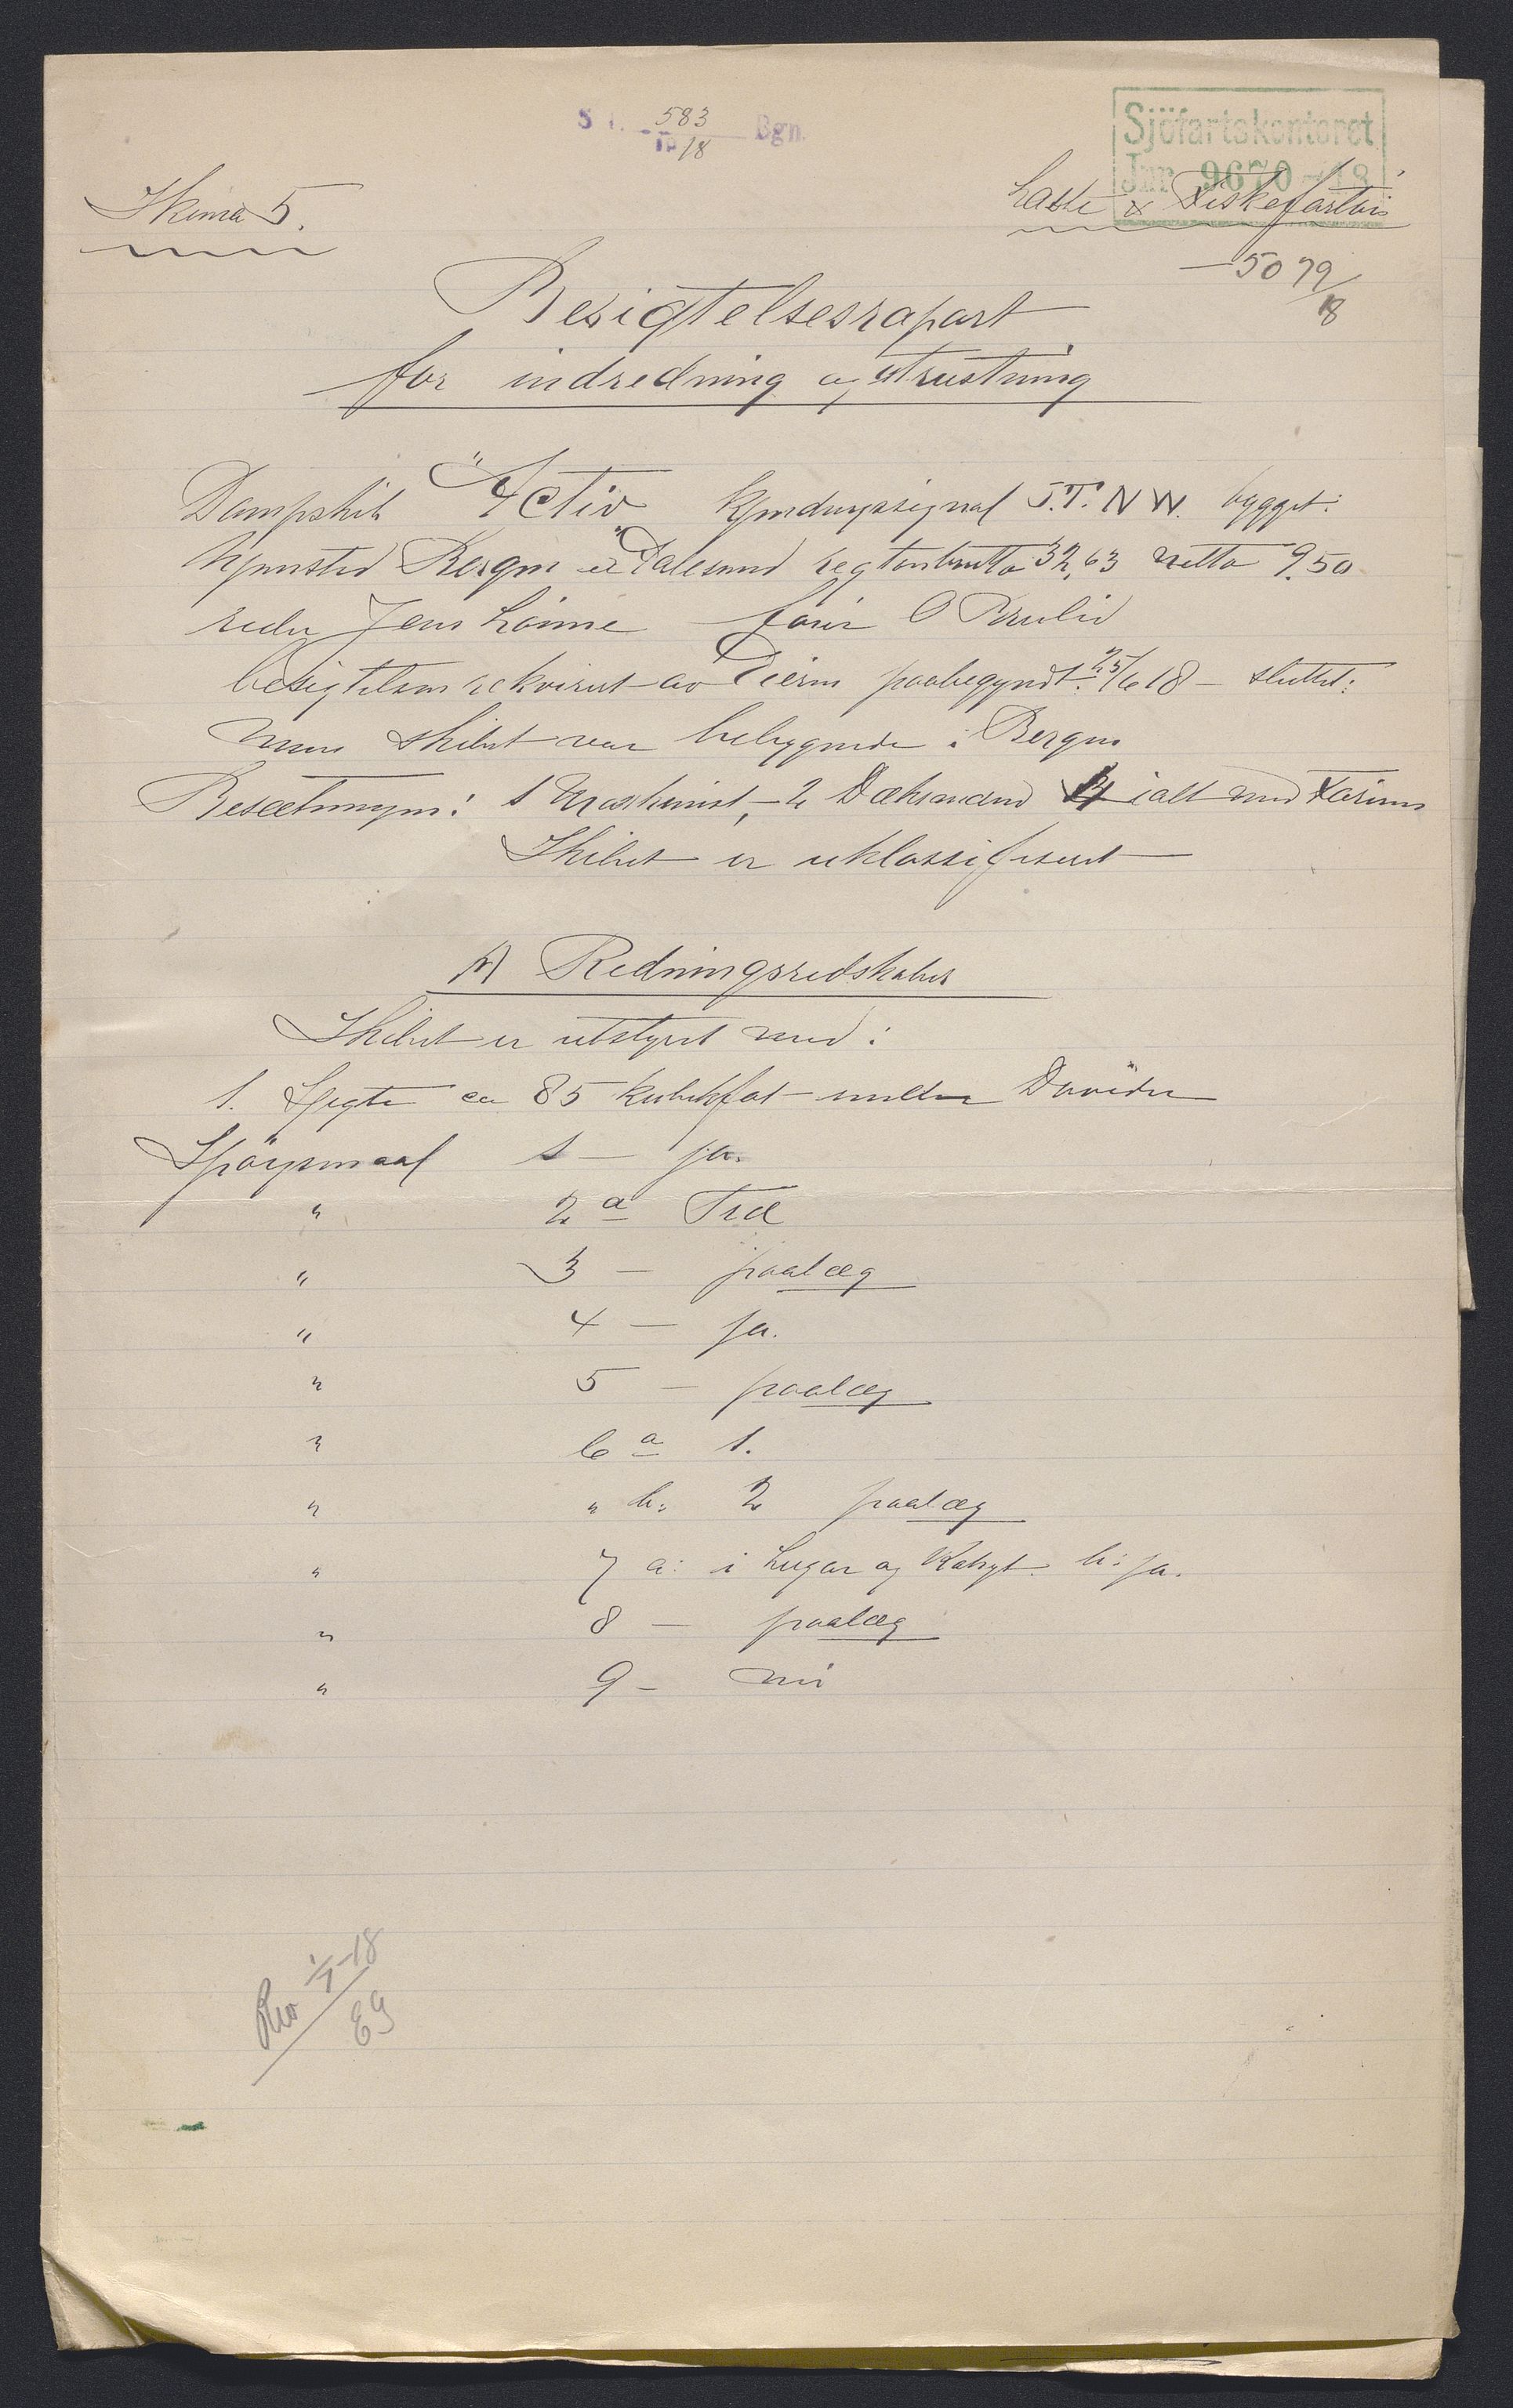 S 583 Bgn.
19 18
Sjöfartskontoret
Jnr 9670 - 18
Skema 5.
Laste & Fiskefartøi
5079
18
Besigtelsesraport
for indredning og utrustning
Dampskib "Activ" Kjendingssignal J.T.N.W. bygget:
hjemsted Bergen regtonbrutto 32,63 netto 9.50
reder Jens Lönne förer O
besigtelsen rekvirert av Eieren paabegyndt: 25/6 18 - sluttet:
mens skibet var beliggende i Bergen
Besætningen: 1 Maskinist, - 2 Dæksmænd 4 ialt med Förerne
Skibet er uklassifisert
A) Redningsredskaber
Skibet er utstyret med:
1. Gigte ca 85 kubikfot - under Davider
Spörgsmaal 1 - ja.
" 2 a Træ
" 3 - paalæg
" 4 - ja.
" 5 - paalæg
" 6 a 1.
" " b: 2 paalæg
" 7 a: i Lugar og Kahyt. b: ja.
" 8 - paalæg
" 9 - nei
1/7-18
EG